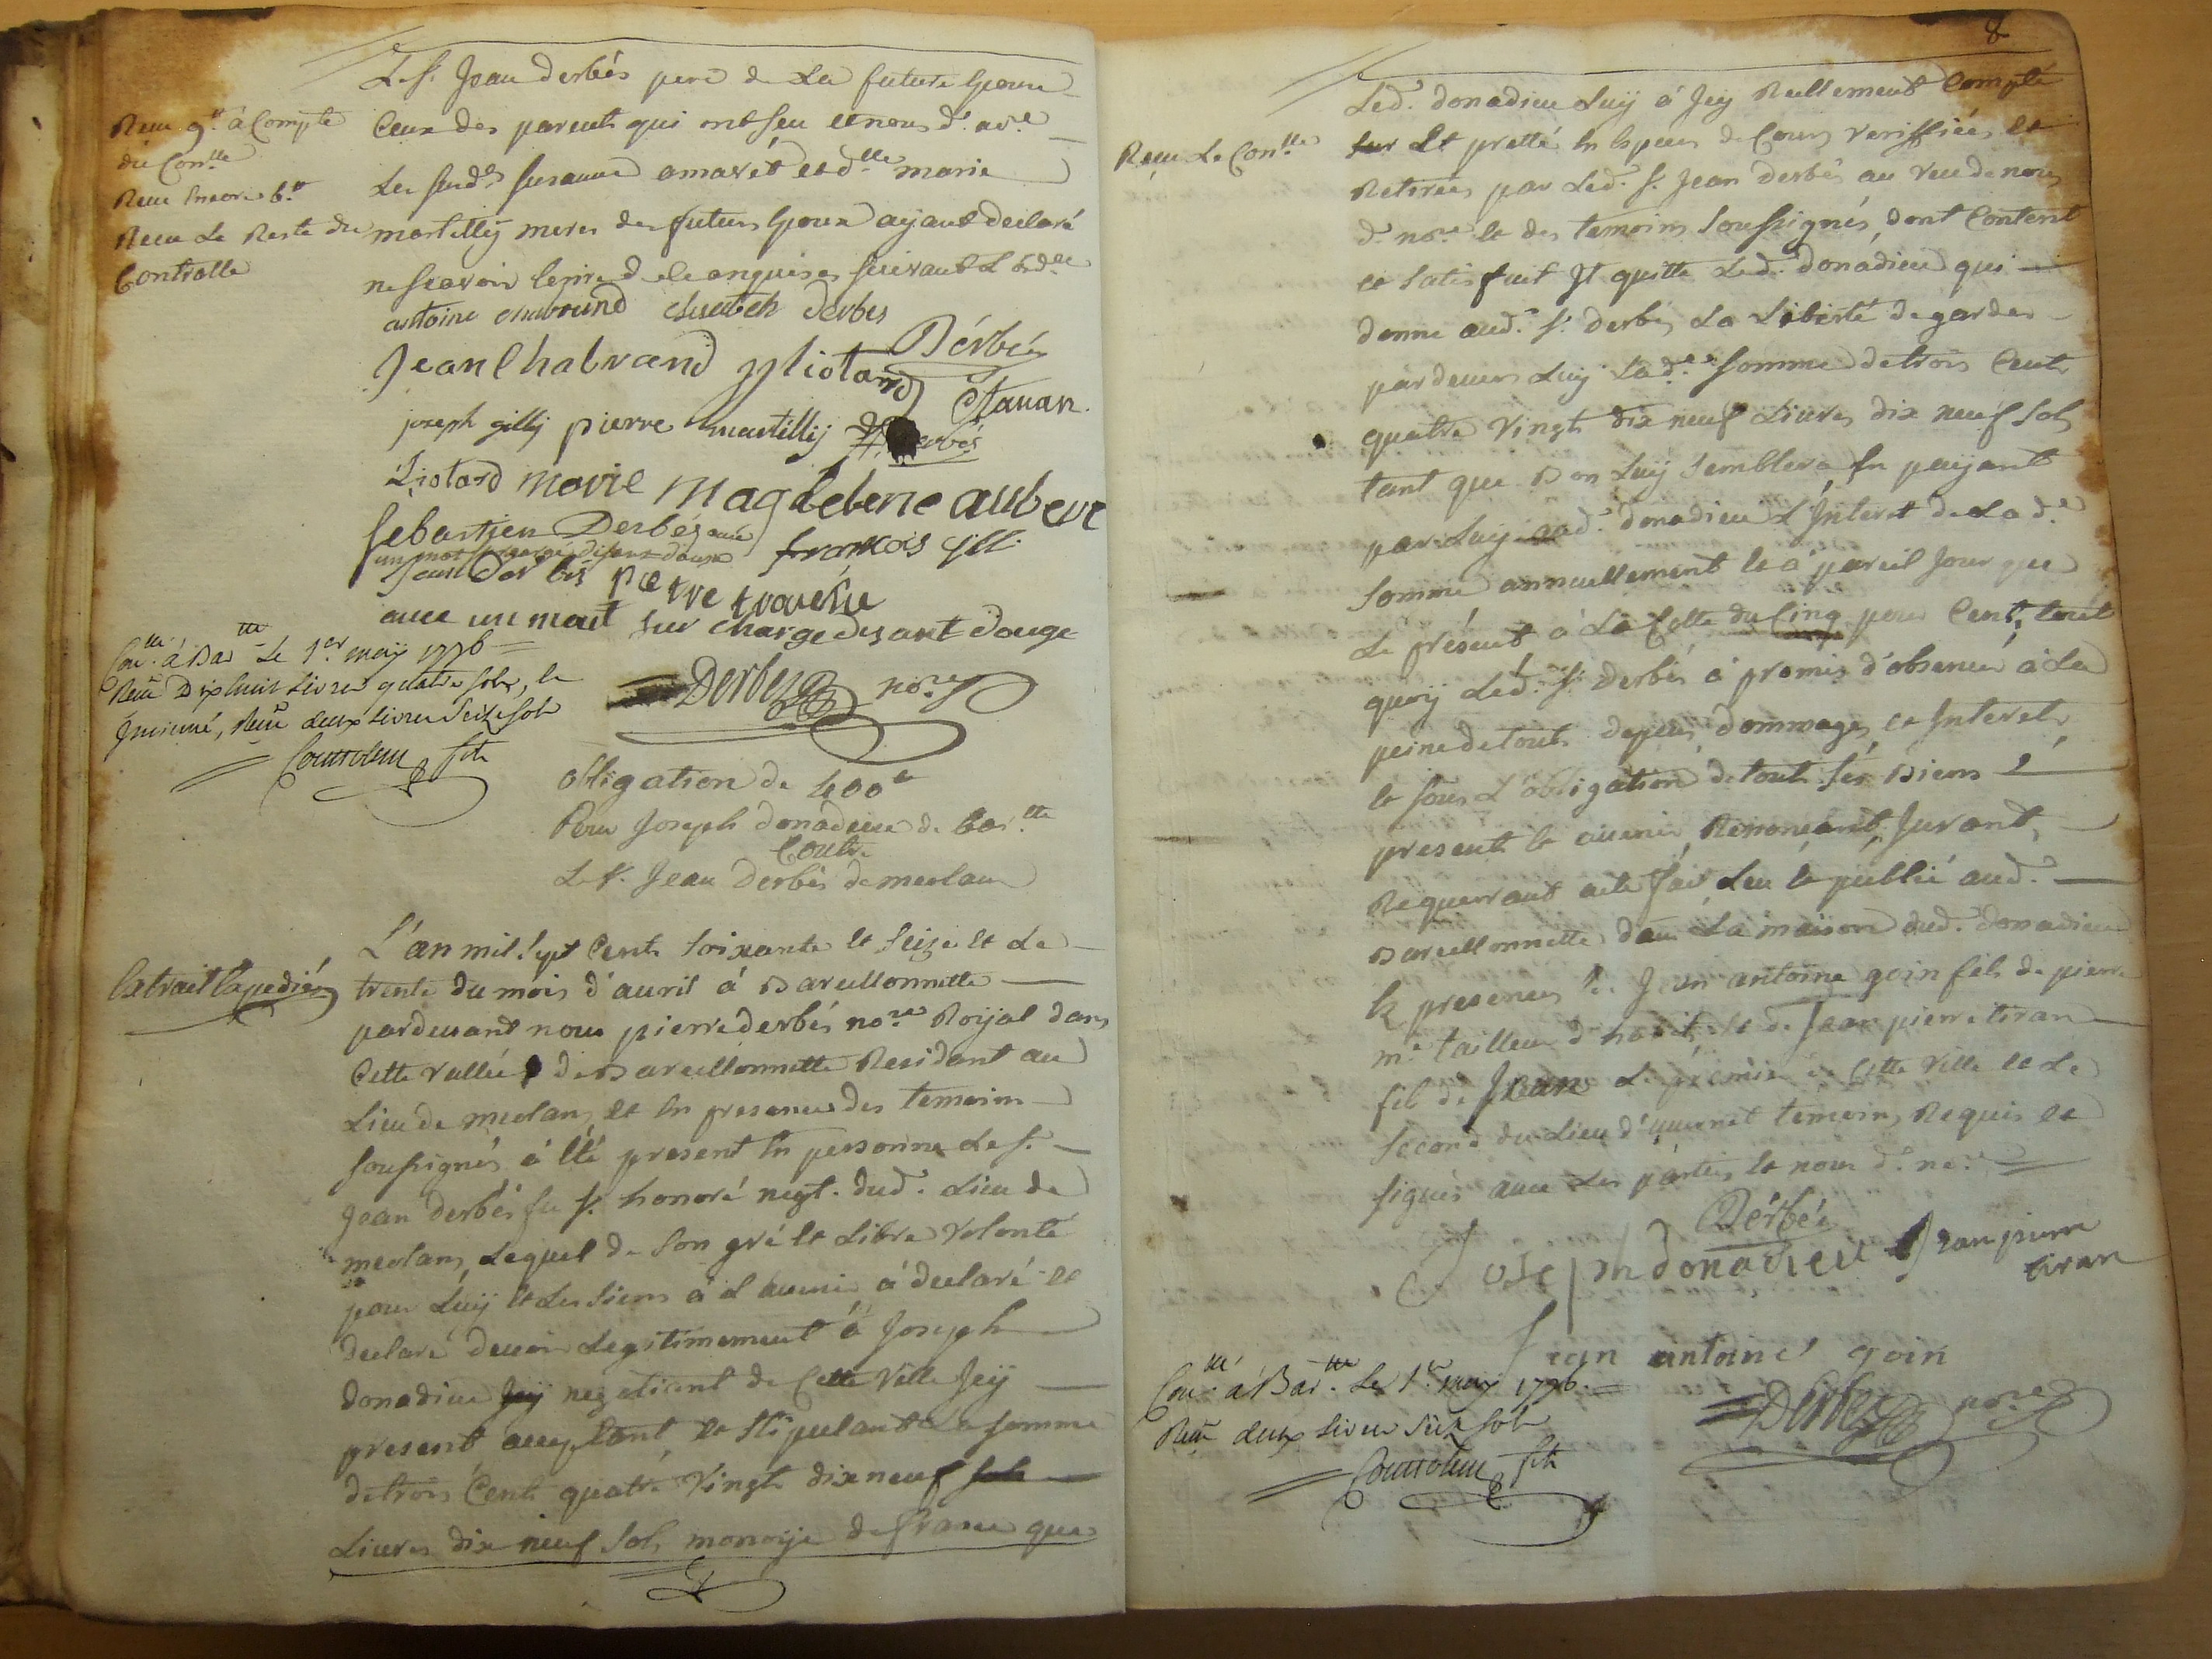 Le Sr. Jean derbés pere de La future Epouse
Ceux des parents qui ont sceu et nous d. nore
Les susdes Susanne amavét et dlle marie
martelly meres des futurs Epoux ayant declaré
ne scavoir Ecrire de ce enquises suivant L'ordce
Reçu 9lt à Compte
du Conlle
Reçu Encore 6lt
Reçu Le Reste du
Controlle
antoine chabrand Elisabeth derbes
Jean Chabrand Liotard Dérbés
joseph gilly pierre martilly Derbés
Liotard marie magdelene aubert
Sebastien Derbés
un mot surchargé disant douze françois gilli
Jean Derbes pierre
avec un mout sur charge disant douge
Derbez nore
Conlé à Barlte Le 1er may 1776
Reçu Dix huit Livres quatre sols, et
Insinué, Reçu deux Livres seize sols
obligation de 400lt
Pour Joseph donadieu de Barlte
Contre
Le Sr. Jean Derbés de meolans
Extrait Expedié
L'an mil sept Cents soixante et seize et Le
trente du mois d'avril à Barcellonnette
pardevant nous pierre derbés nore Royal dans
Cette vallée de Barcellonnette Residant au
Lieu de meolans, et En presence des temoins
soussignés à Eté present En personne Le Sr.
Jean derbés feu Sr. honoré negt. dud. Lieu de
meolans, Lequel de son gré et Libre volonté
pour Luy et Les siens à L'avenir à declaré et
declare devoir Legitimement à Joseph
donadieu Jcy negotiant de Cette ville Jcy
present acceptant et stipulant La somme
de trois Cents quatre vingts dix neuf sols
Livres dix neuf sols monoye de france que
8
Reçu Le Conlle
Led. donadieu Luy à Jcy Réellement Compté
sur Et pretté En Especes de Cours verifiiées et
Retirées par Led. Sr. Jean Derbés au veu de nous
d. nore et des temoins soussignés, dont Content
et satisfait Il quitte Led. donadieu qui
donne aud. Sr. derbés La Liberté de garder
pardevers Luy Lade somme de trois Cents
quatre vingts dix neuf Livres dix neuf sols
tant que Bon Luy semblera En payant
par Luy aud. donadieu L'Interet de Lade
somme annuellement et à pareil Jour que
Le présent à La Cotte du Cinq pour Cent, tout
quoy Led. Sr. Derbés à promis d'observer à La
peine de touts depens, dommages et Interets
et sous L'obligation de touts ses Biens
presents et avenir, Renonçant, Jurant,
Requerrant acte fait, Leu et publié aud.
Barcellonnette dans La maison dud. donadieu
En presence de Jean antoine goin fils de pierre
me tailleur d'habits et de Jean pierre tiran
fils de Jean Le premier de Cette ville et Le
second du Lieu d'uvernet temoins Requis et
signés avec Les parties, et nous d. nore
Dérbés
Joseph donadieu Jean pierre
tiran
Jean antoine goin
Derbez nore
Conlé à Barlte Le 1er may 1776
Reçu deux Livres seize sols